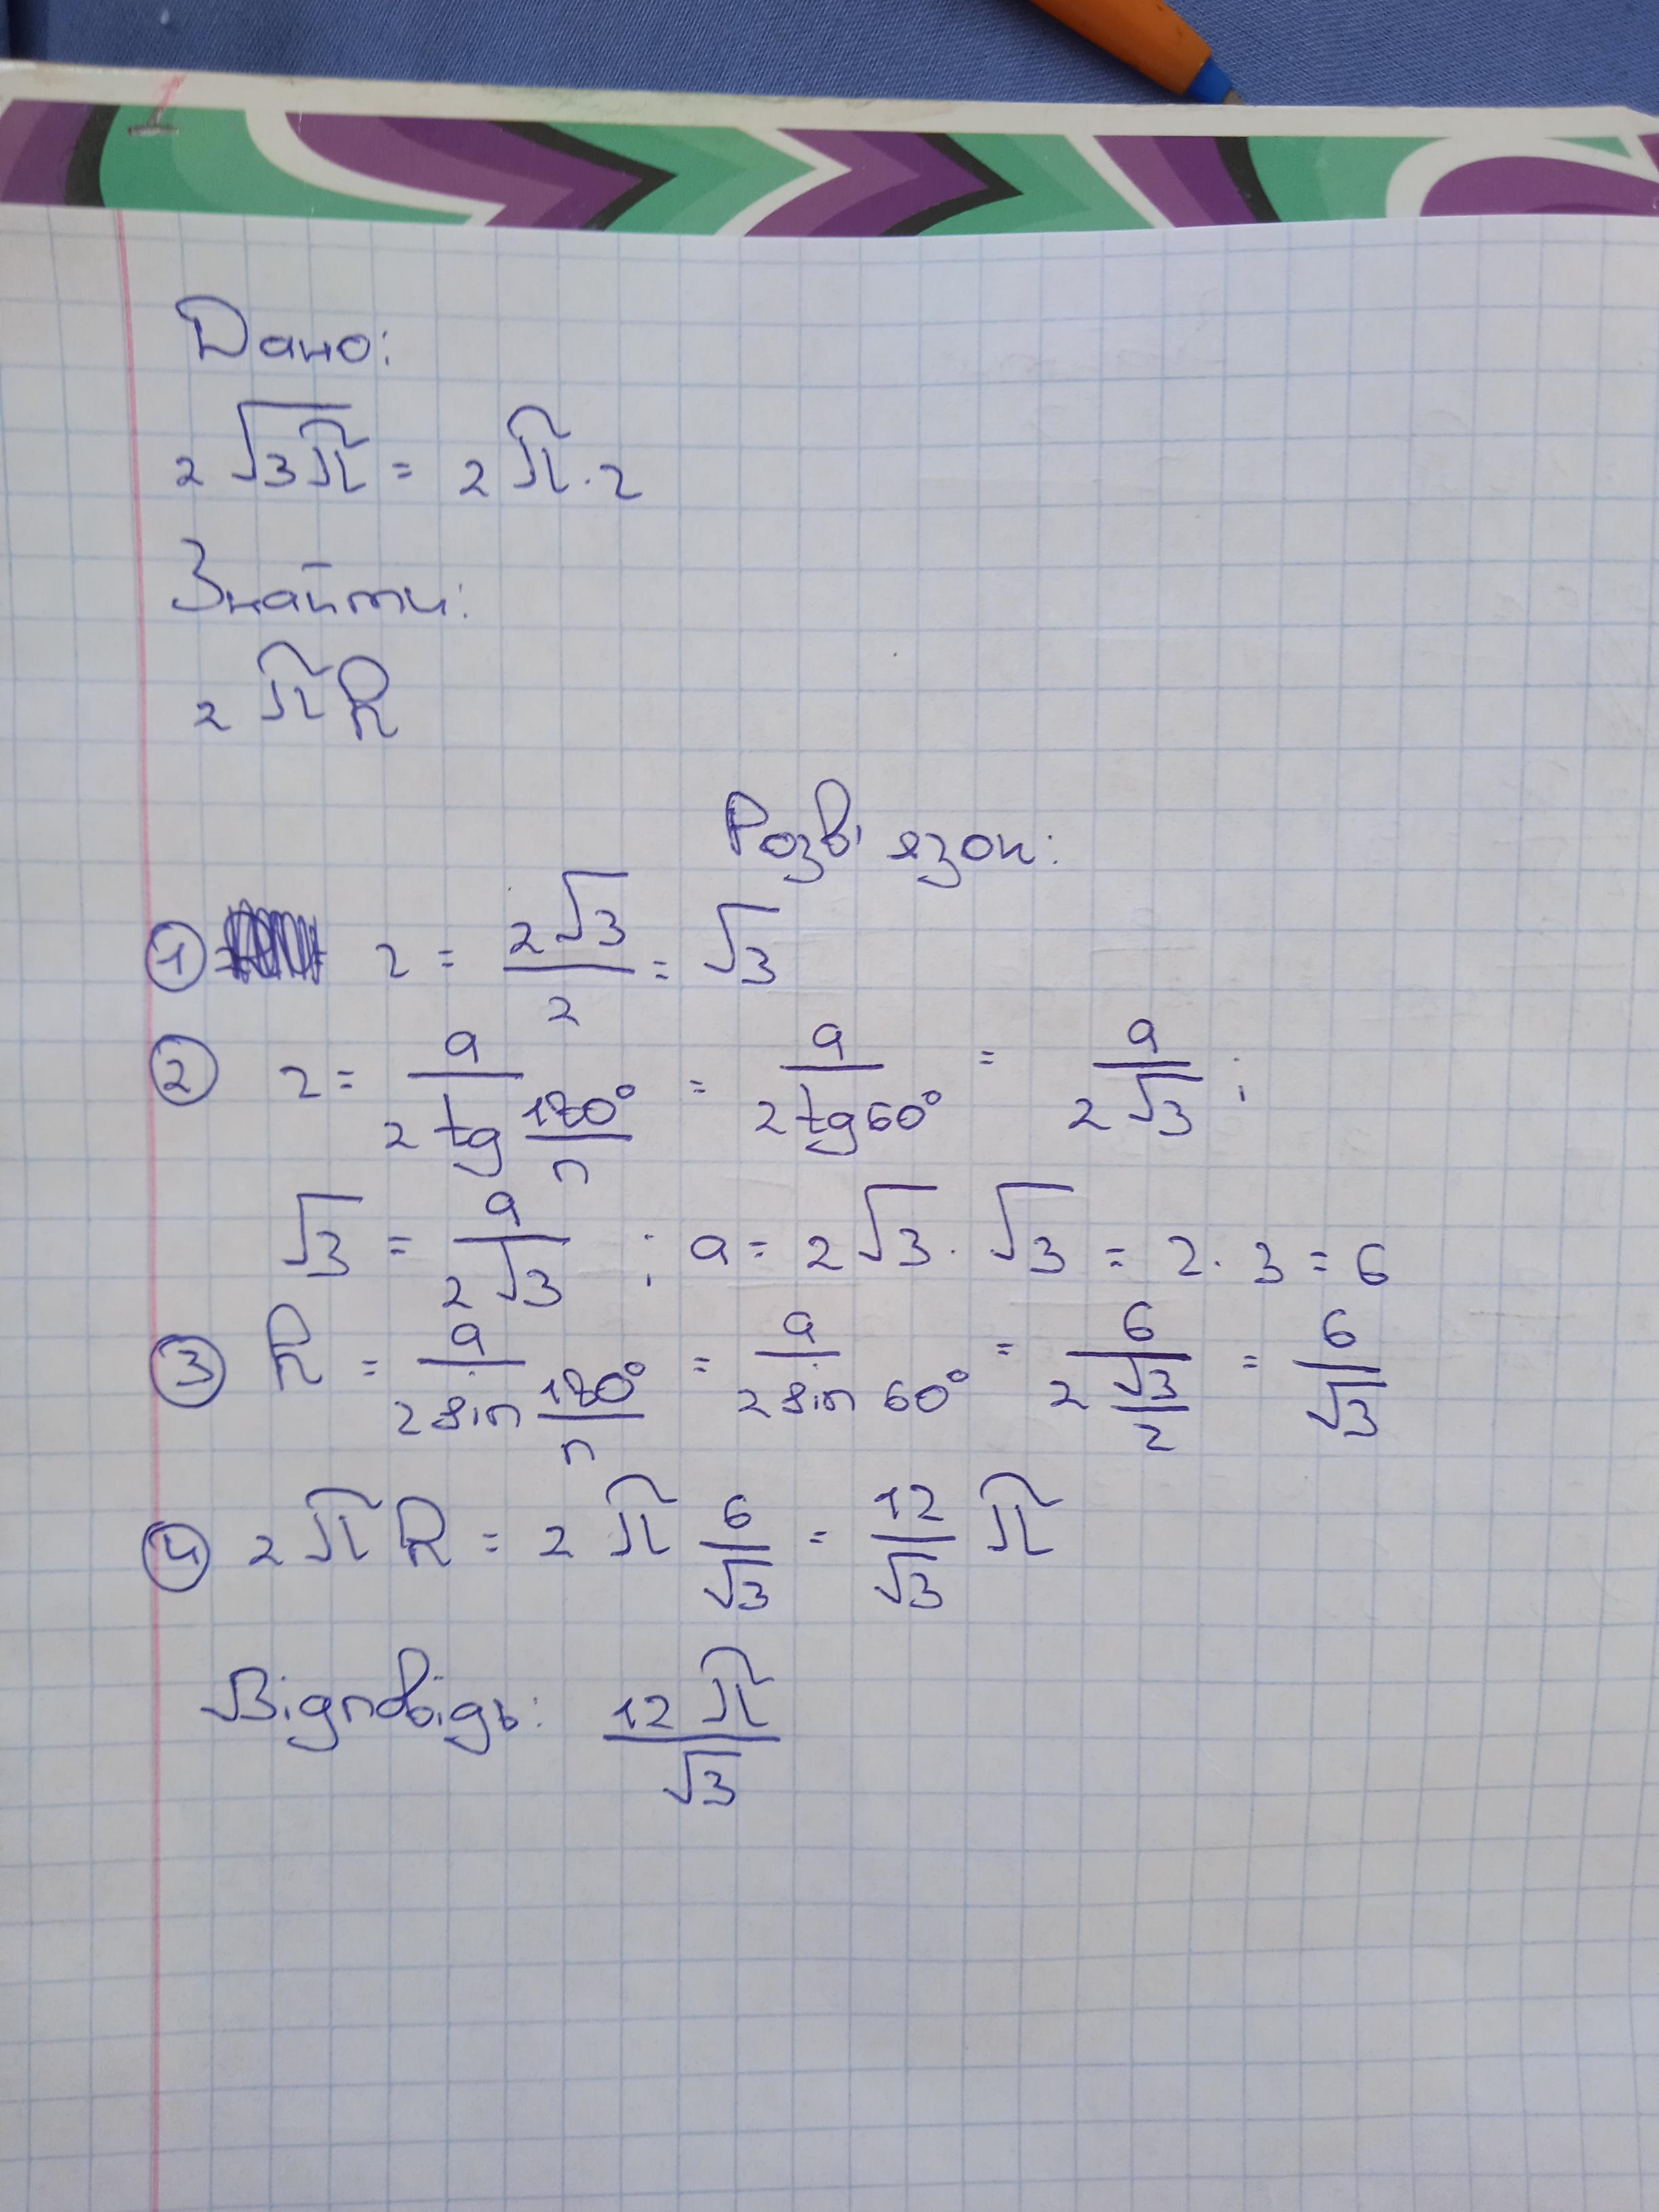 1
Дано:
2√3π = 2π·r
Знайти:
2πR
Розв'язок:
① r = 2√3/2 = √3
② r = a/(2tg 180°/n) = a/(2tg60°) = a/(2√3);
√3 = a/(2√3); a = 2√3·√3 = 2·3 = 6
③ R = a/(2sin 180°/n) = a/(2sin 60°) = 6/(2 √3/2) = 6/√3
④ 2πR = 2π 6/√3 = 12/√3 π
Відповідь: 12π/√3